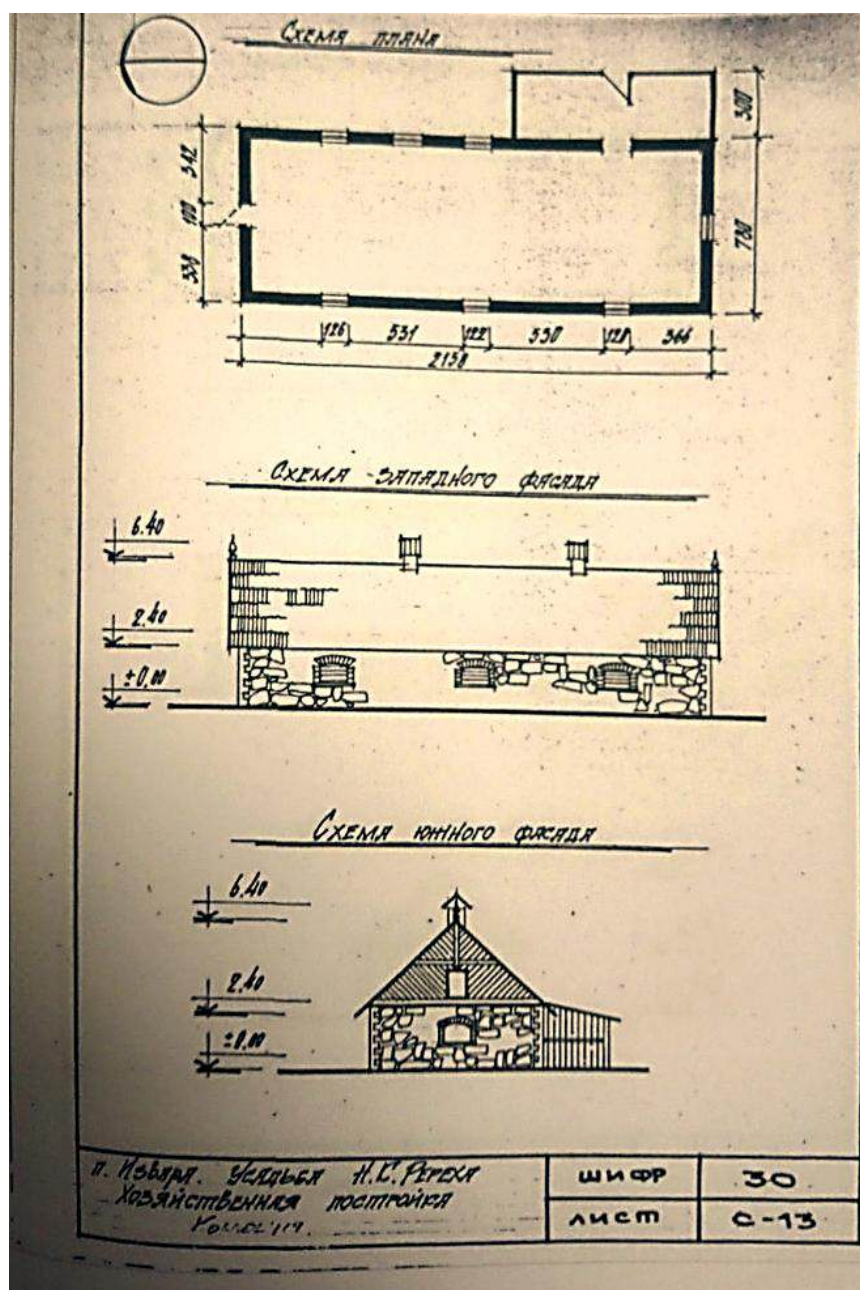 Схема плана
300
342
100
338
780
126 531 122 530 128 366
2138
Схема западного фасада
6.40
2.40
±0,00
Схема южного фасада
6.40
2.40
±0,00
п. Извара. Усадьба Н.К. Рериха
Хозяйственная постройка
шифр 30
лист С-13